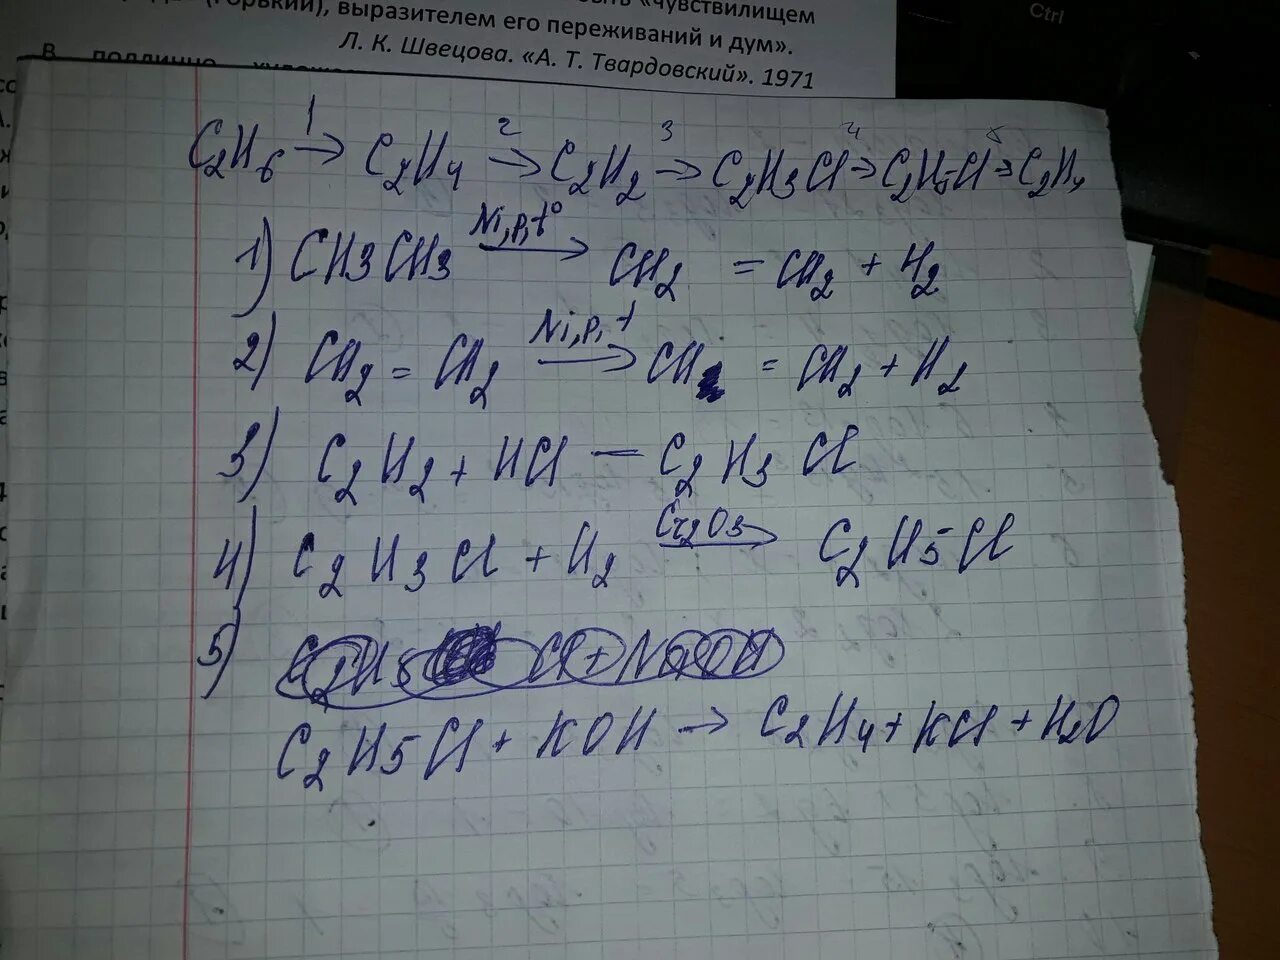 «чувствилищем
(Горький), выразителем его переживаний и дум».
Л. К. Швецова. «А. Т. Твардовский». 1971
Ctrl
В подлинно
1 2 3 4 5
C₂H₆ → C₂H₄ → C₂H₂ → C₂H₃Cl → C₂H₅Cl → C₂H₄
1) CH3CH3 Ni,p,t° → CH₂ = CH₂ + H₂
2) CH₂ = CH₂ Ni,p,t → CH₂ = CH₂ + H₂
3) C₂H₂ + HCl — C₂H₃Cl
4) C₂H₃Cl + H₂ Cr₂O3 → C₂H5Cl
5) C₂H5 Cl + NaOH
C₂H5Cl + KOH → C₂H₄ + KCl + H₂O